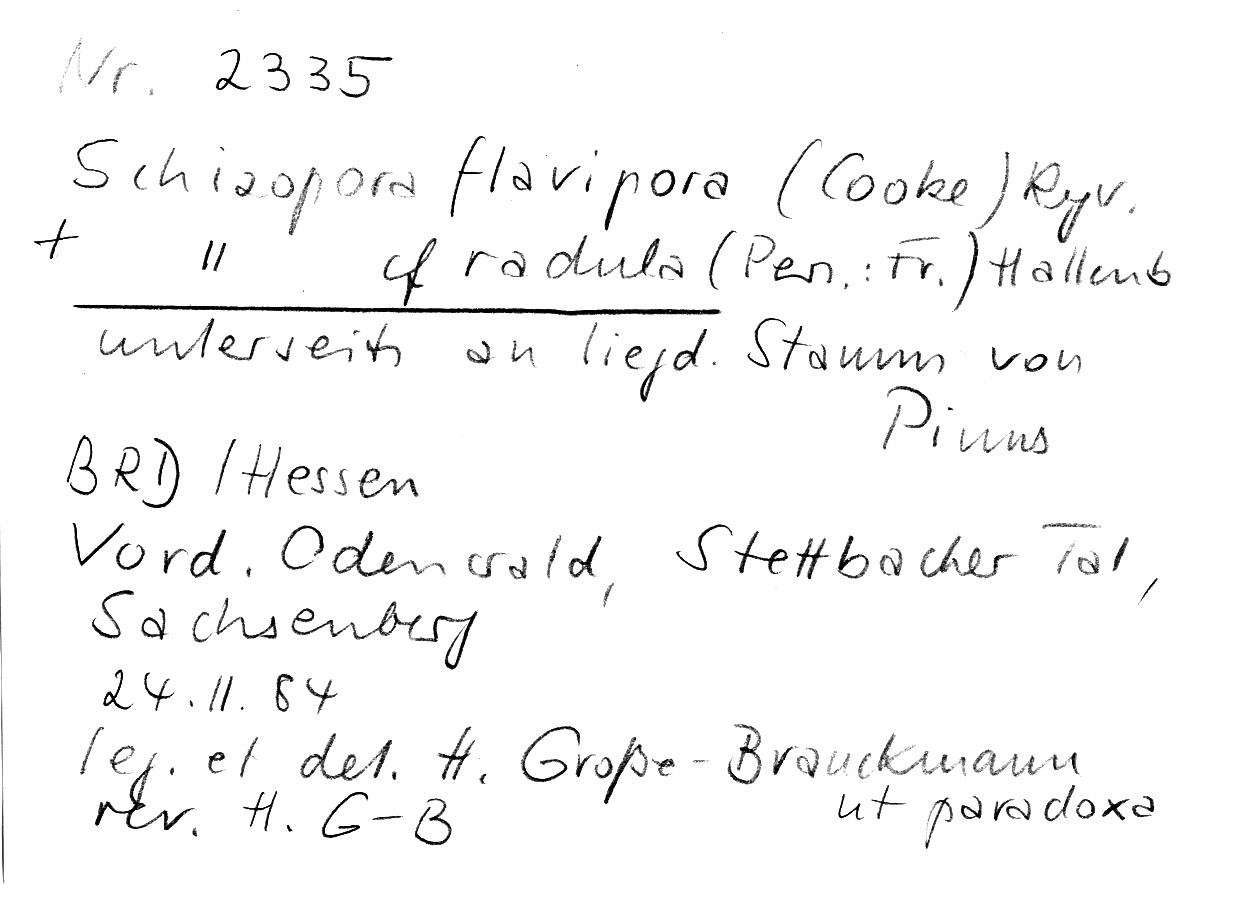 Nr. 2335
Schizopora flavipora (Cooke) Ryv.
+ " cf radula (Pers.: Fr.) Hallenb
unterseits an liegd. Stamm von
Pinus
BRD / Hessen
Vord. Odenwald, Stettbacher Tal,
Sachsenberg
24.11.84
leg. et det. H. Große-Brauckmann
ut paradoxa
rev. H. G-B